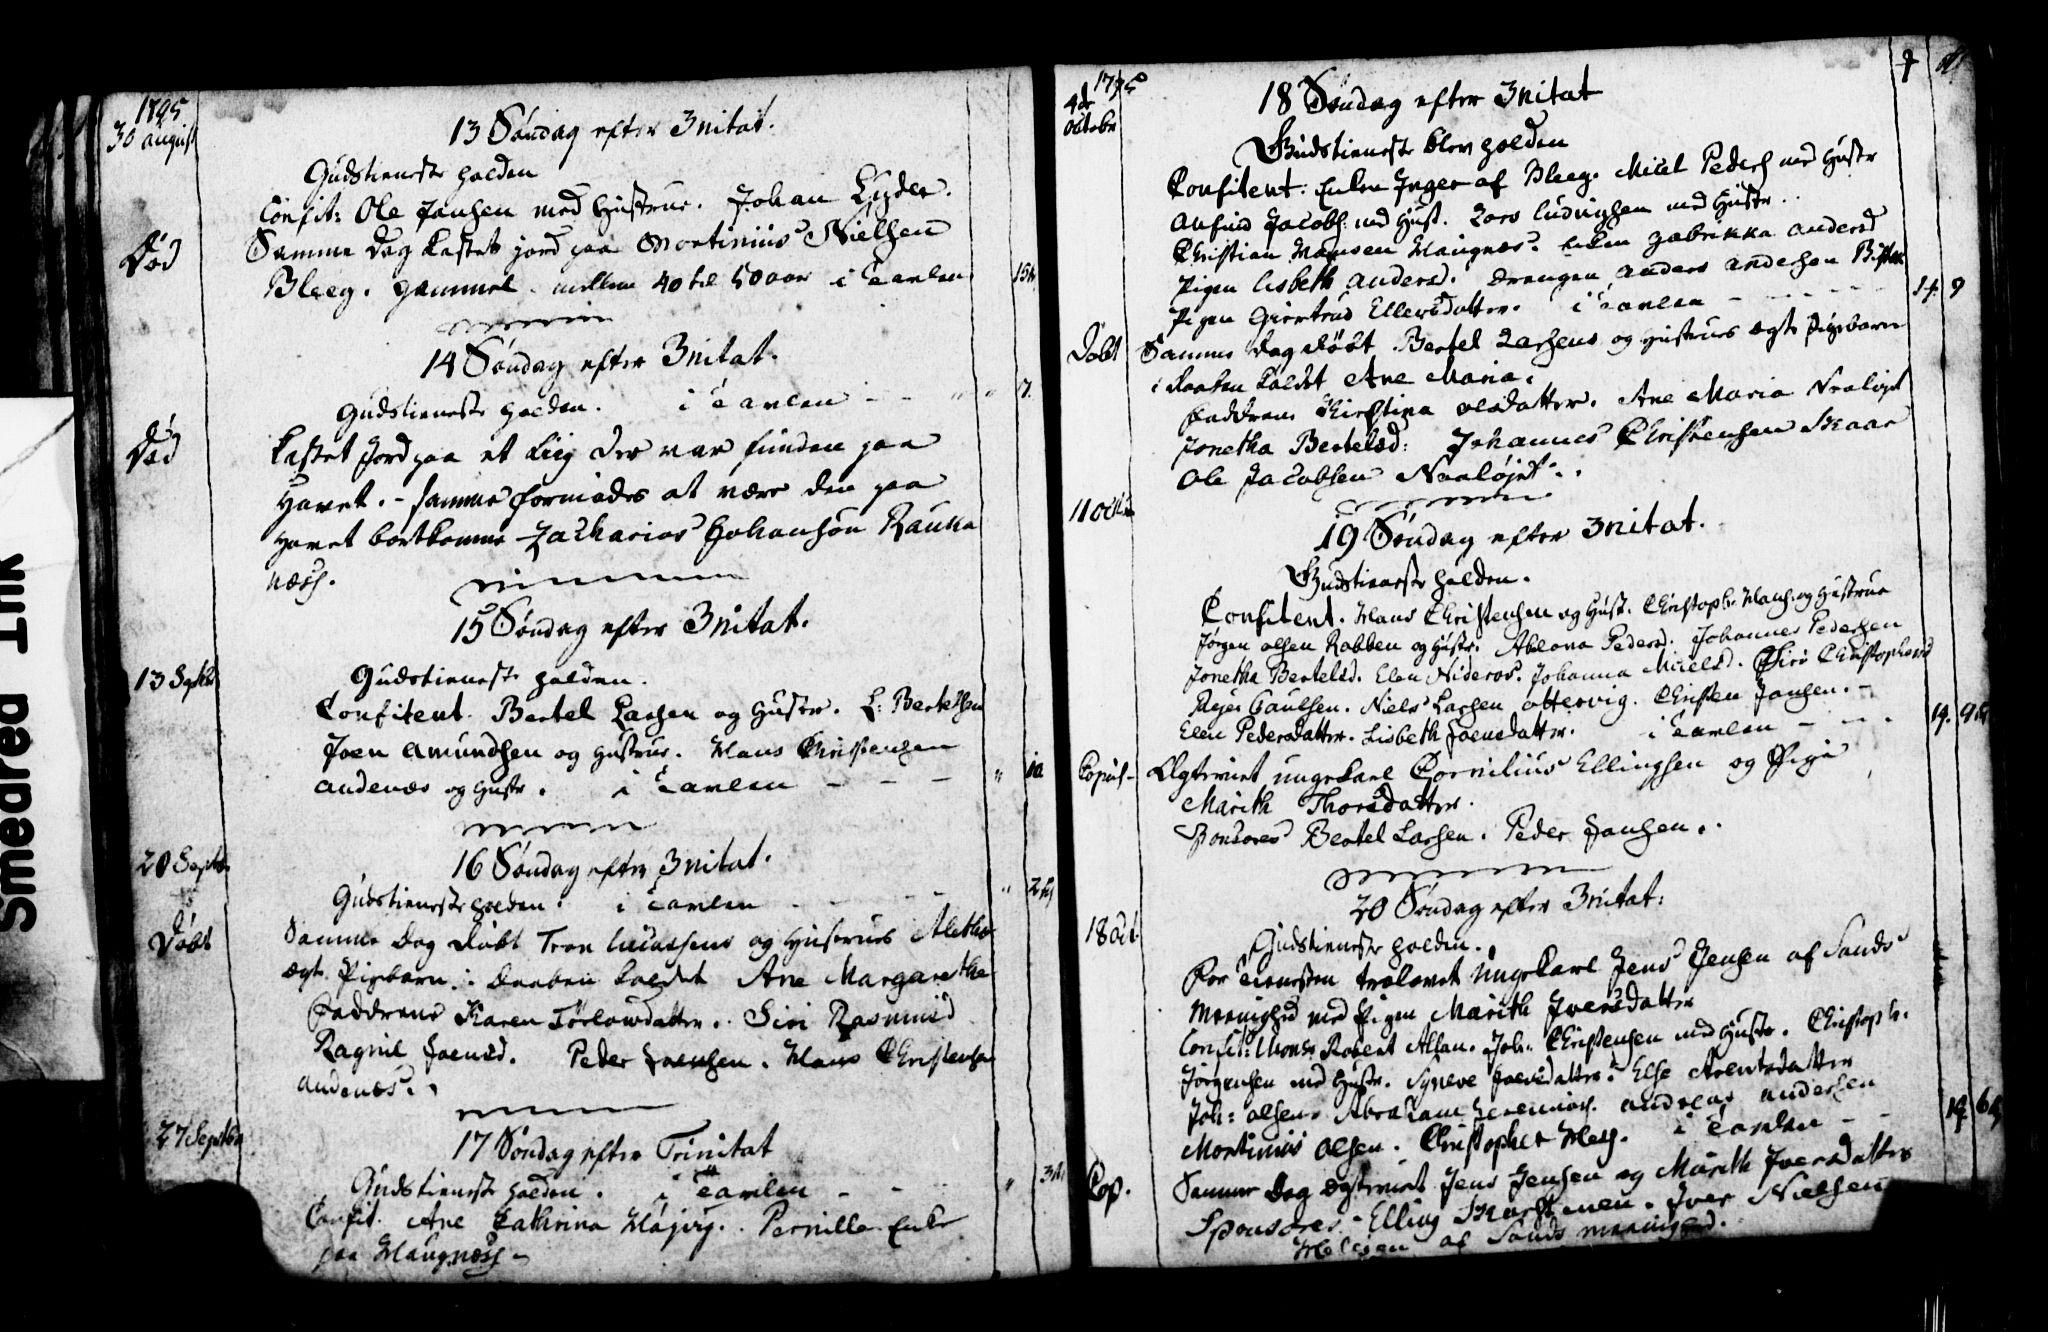 1795
30 august
13 Søndag efter 3nitat.
Gudstieneste holden
Confit: Ole Jansen med Hustrue. Johan Lyder.
Død
Samme Dag kastet jord paa Mortinius Nielsen
Bleeg. gammel mellem 40 til 50 aar i Tavlen 15
14 Søndag efter 3nitat.
Gudstieneste holden. i Tavlen - - " " 7.
Død
Kastet Jord paa et Liig der var funden paa
Havet. - samme formodes at være den paa
Havet bortkomne Zacharias Johansøn Rauka
næss.
15 Søndag efter 3nitat.
13 Septbr
Gudstieneste holden.
Confitent. Bertel Larsen og Hustr. L: Bertelsen
Joen Amundsen og Hustrue. Hans Christensen
Andenæs og Hustr. i Tavlen - - - " 10
16 Søndag efter 3nitat.
20 Septbr
Gudstieneste holden. i Tavlen - - - " 2
Døbt
Samme Dag døbt Tron Lucassens og Hustrues Alethe
ægte Pigebarn i Daaben kaldet Ane Margarethe
Faddrene Karen Torlowdatter. Siri Rasmusd
Ragnil Joensd. Peder Joensen. Hans Christensen
Andenæs.
27 Septbr
17 Søndag efter Trinitat
Gudstieneste holden. i Tavlen - - " 3
Confit. Ane Cathrina Højvig. Pernille Enke
paa Haugnæss -
1795
4de
octobr
18 Søndag efter 3nitat
Gudstieneste blev holden
Confitent: Enken Inger af Bleeg. Michel Peders med Hustr
Anfind Jacobs: med Hust. Lars Ludvigsen med Hustr..
Christian Hansen Haugnæs. Enken Anders
Pigen Lisbeth Andersd. Drengen Anders Andersen
Pigen Giertrud Ellersdatter. i Tavlen - - - 14 9
Døbt
Samme Dag døbt Bertel Larsens og Hustrues ægte Pigebarn
i Daaben kaldet Ane Maria.
Faddrene Kirstina Olsdatter. Ane Maria
Jonetha Bertelsd: Johannes Christensen Skaar
Ole Jacobsen
11 octbr
19 Søndag efter 3nitat.
Gudstieneste holden.
Confitent. Hans Christensen og Hust. Christoph. Hans: og Hustrue
Jørgen Olsen Robben og Hustr. Abelona Pedersd. Johannes Pedersen
Jonetha Bertelsd. Elen Nideros. Johanna Michelsd. Siri Christophersd
Rejer Paulsen. Niels Larsen Ottervig. Christen Jansen. -
Elen Pedersdatter. Lisbeth Joensdatter. i Tavlen - - - 14. 9
Copul-
Ægteviet ungekarl Cornilius Ellingsen og Pige
Marith Thorsdatter.
Sponsores Bertel Larsen. Peder Jansen..
20 Søndag efter 3nitat:
18 oct
Gudstieneste holden.
Før tienesten trolovet Ungekarl Jens Jensen af Sands
Menighed med Pigen Marith Iversdatter
Confit: Mons: Robert Allan. Joh: Christensen med Hustr. Christoph.
Jørgensen med Hustr. Syneve Joensdatter. Else Arentsdatter
Joh: Olsen. Abraham Andreas Andersen
Mortinius Olsen. Christopher i Tavlen - - 14. 6
Cop.
Samme Dag ægteviet Jens Jensen og Marith Iversdatter
Sponsores. Elling Iver Nielsen
af Sands menighed.